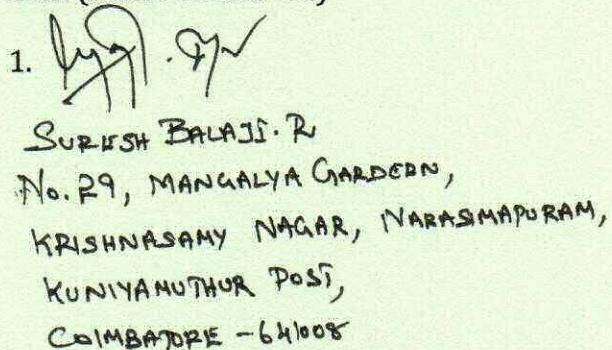 1.
SURESH BALAJI. R
No. 29, MANGALYA GARDEEN,
KRISHNASAMY NAGAR, NARASIMAPURAM,
KUNIYAMUTHUR POST,
COIMBATORE - 641008